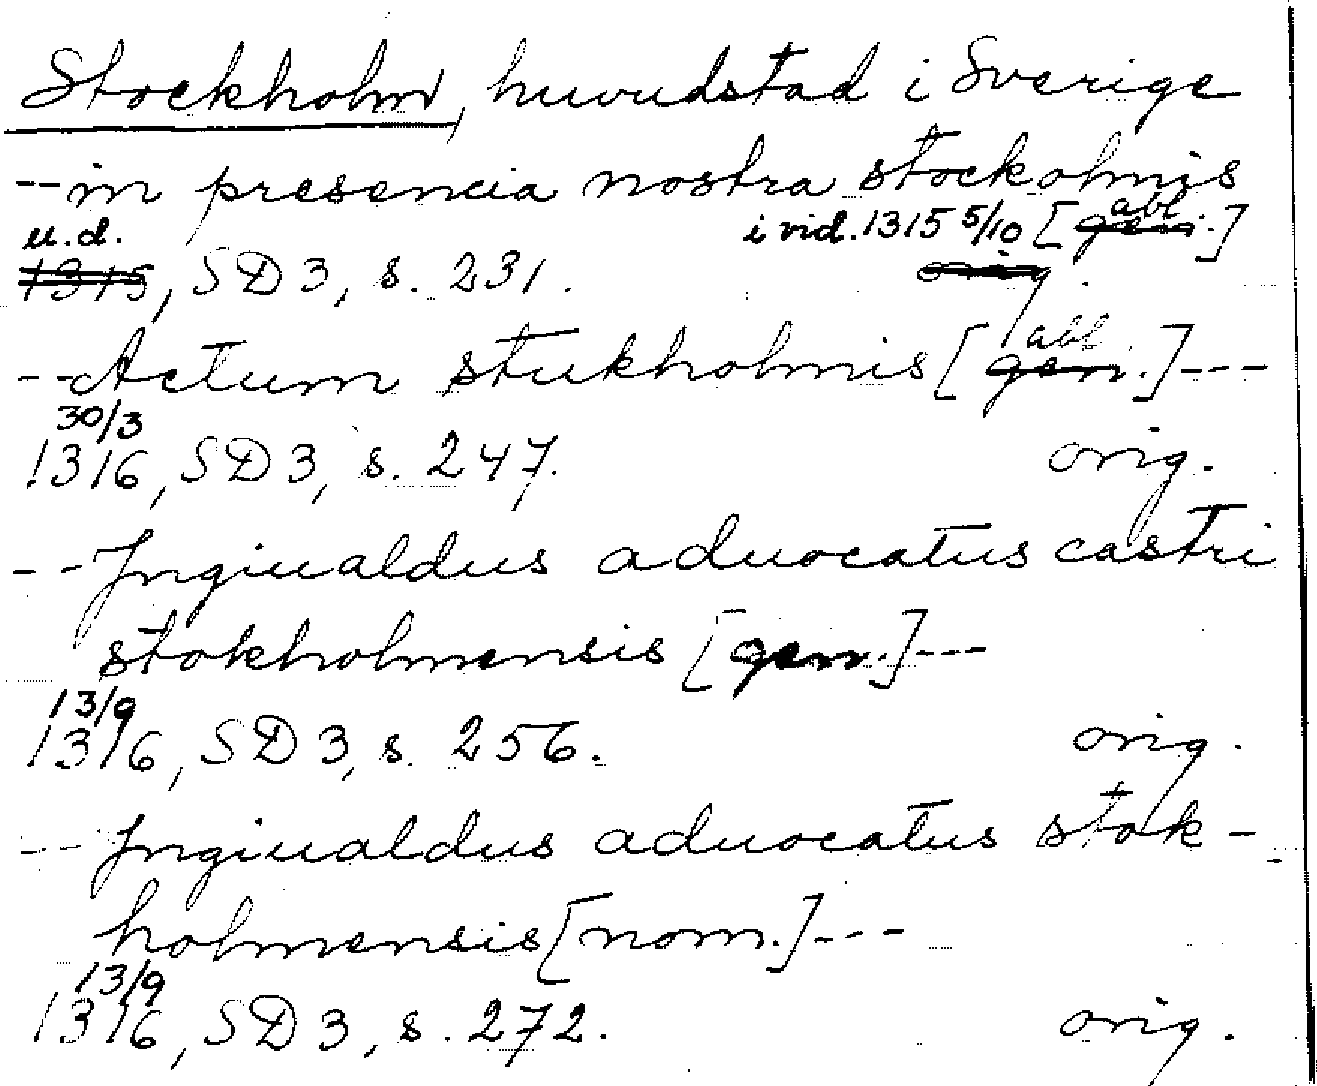 Stockholm, huvudstad i Sverige
--in presencia nostra stockolmis
u.d. i vid. 1315 5/10 [abl gen.]
1315, SD 3, s. 231. orig.
--Actum stukholmis [abl. gen.]---
30/3
1316, SD 3, s. 247. orig.
--Jngiualdus aduocatus castri
stokholmensis [gen.]---
13/9
1316, SD 3, s. 256. orig.
--Jngiualdus aduocatus stok-
holmensis [nom.]---
13/9
1316, SD 3, s. 272. orig.